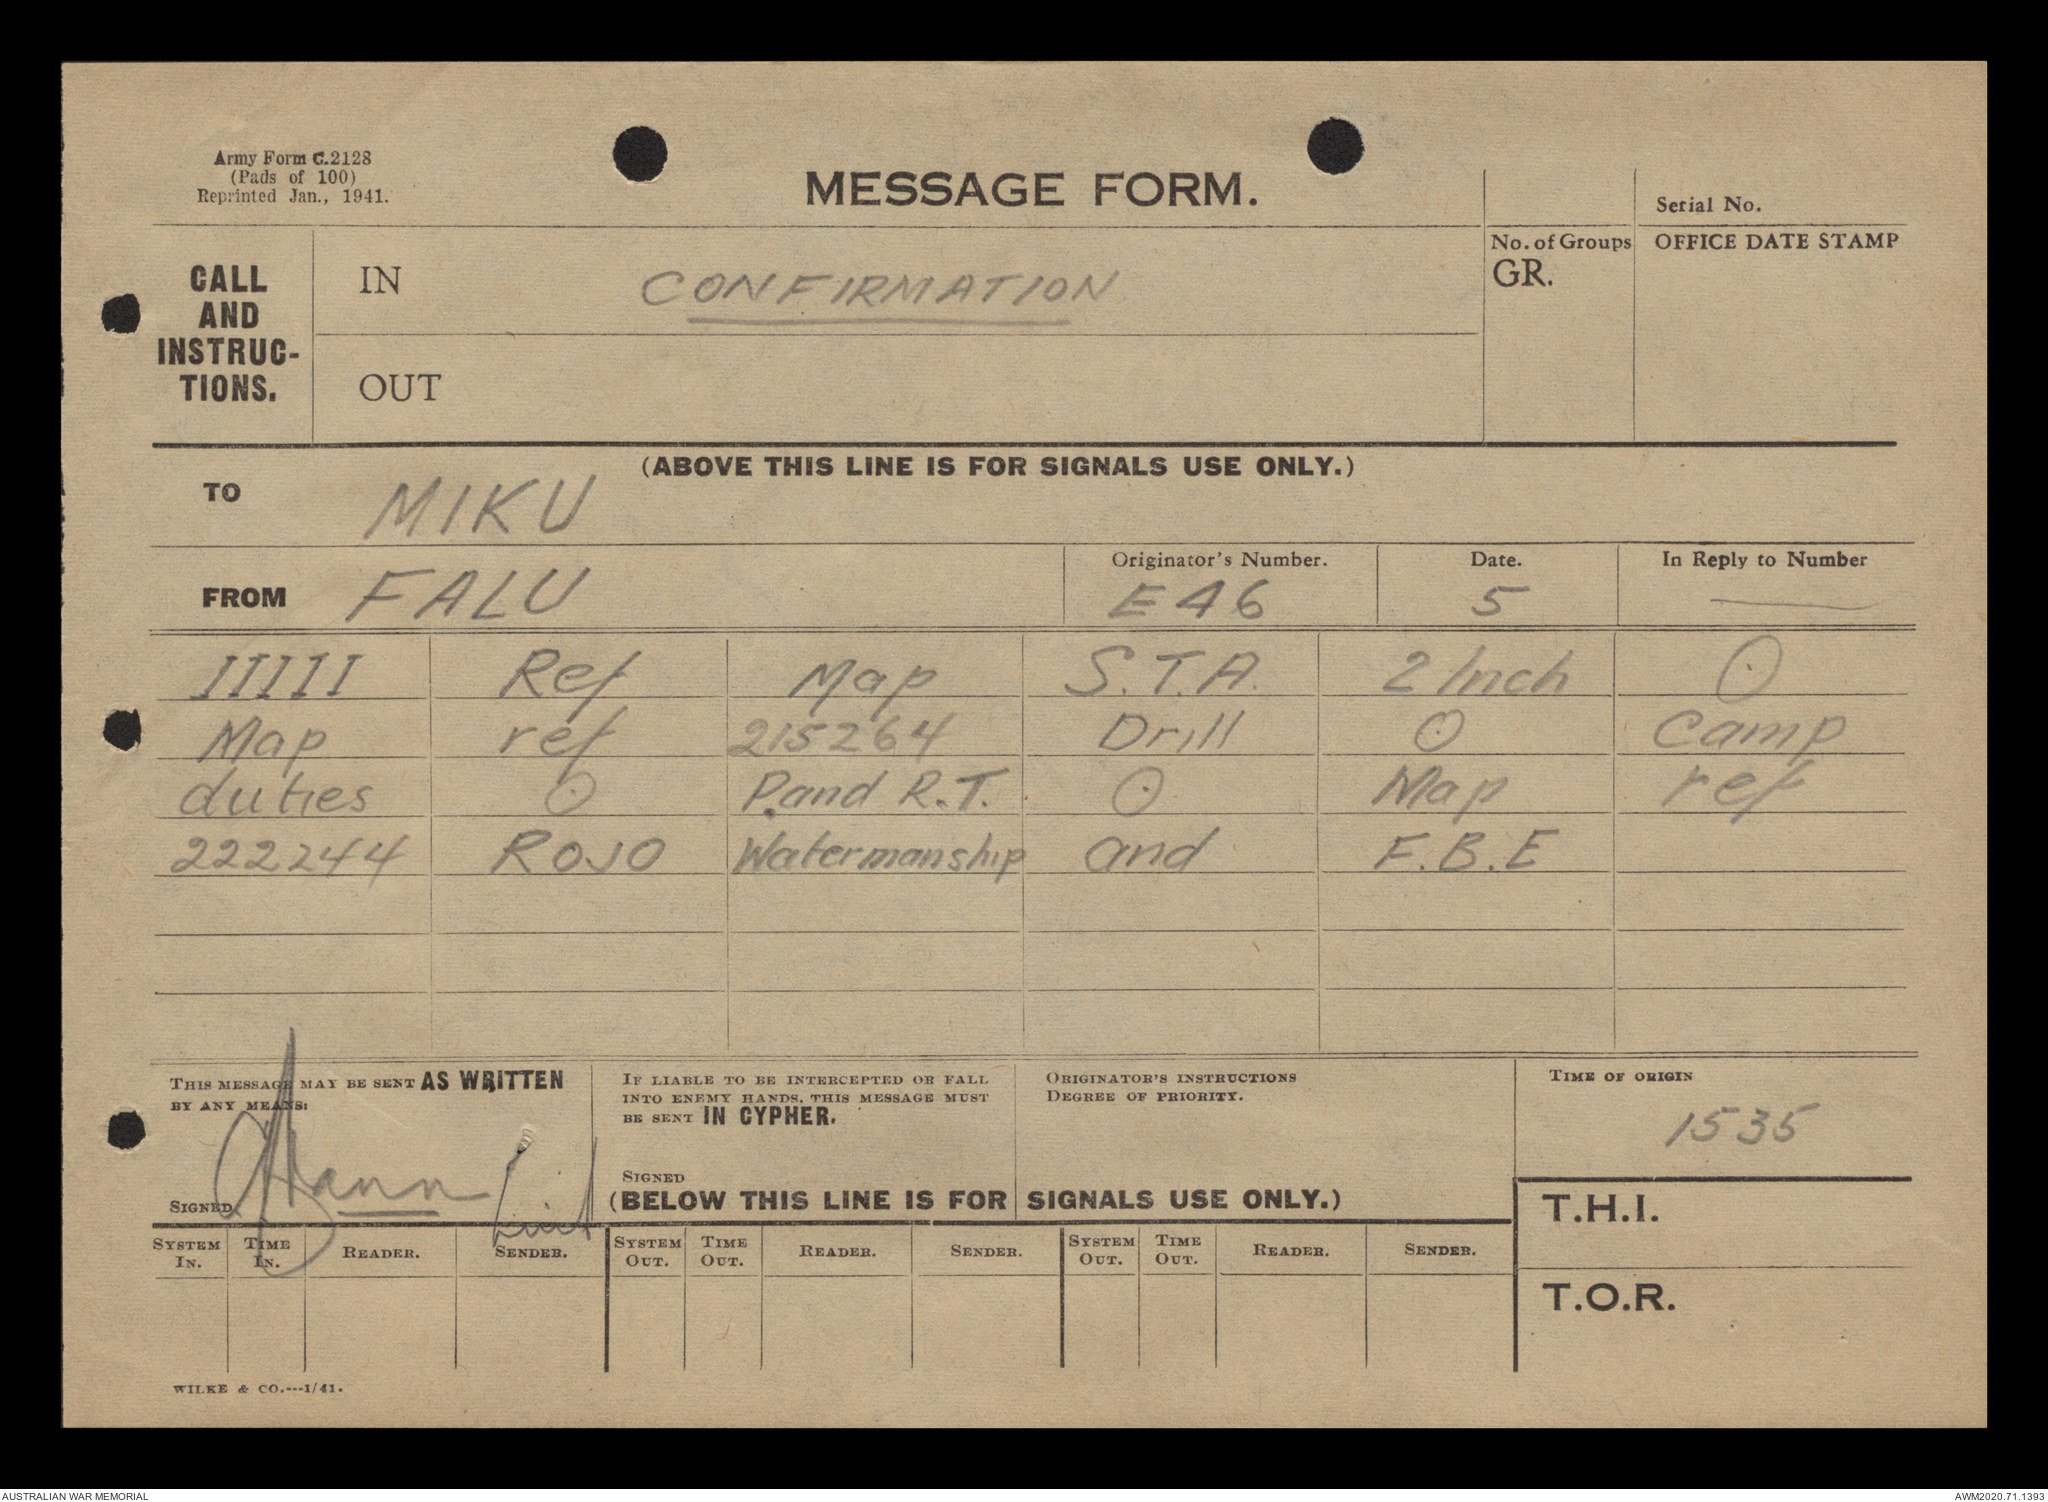 Army Form C.2128
(Pads of 100)
Reprinted Jan., 1941.
MESSAGE FORM.
Serial No.
CALL AND INSTRUC-TIONS.
IN CONFIRMATION
OUT
No. of Groups
GR.
OFFICE DATE STAMP
(ABOVE THIS LINE IS FOR SIGNALS USE ONLY.)
TO MIKU
FROM FALU
Originator's Number.
E46
Date.
5
In Reply to Number
—
IIIII Ref Map S.T.A. 2 Inch ⊙
Map ref 215264 Drill ⊙ Camp
duties ⊙ P. and R.T. ⊙ Map ref
222244 ROJO Watermanship and F.B.E
THIS MESSAGE MAY BE SENT AS WRITTEN
BY ANY MEANS:
SIGNED
IF LIABLE TO BE INTERCEPTED OR FALL
INTO ENEMY HANDS, THIS MESSAGE MUST
BE SENT IN CYPHER.
SIGNED
ORIGINATOR'S INSTRUCTIONS
DEGREE OF PRIORITY.
TIME OF ORIGIN
1535
(BELOW THIS LINE IS FOR SIGNALS USE ONLY.)
T.H.I.
T.O.R.
SYSTEM IN. TIME IN. READER. SENDER. SYSTEM OUT. TIME OUT. READER. SENDER. SYSTEM OUT. TIME OUT. READER. SENDER.
WILKE & CO.---1/41.
AUSTRALIAN WAR MEMORIAL
AWM2020.71.1393